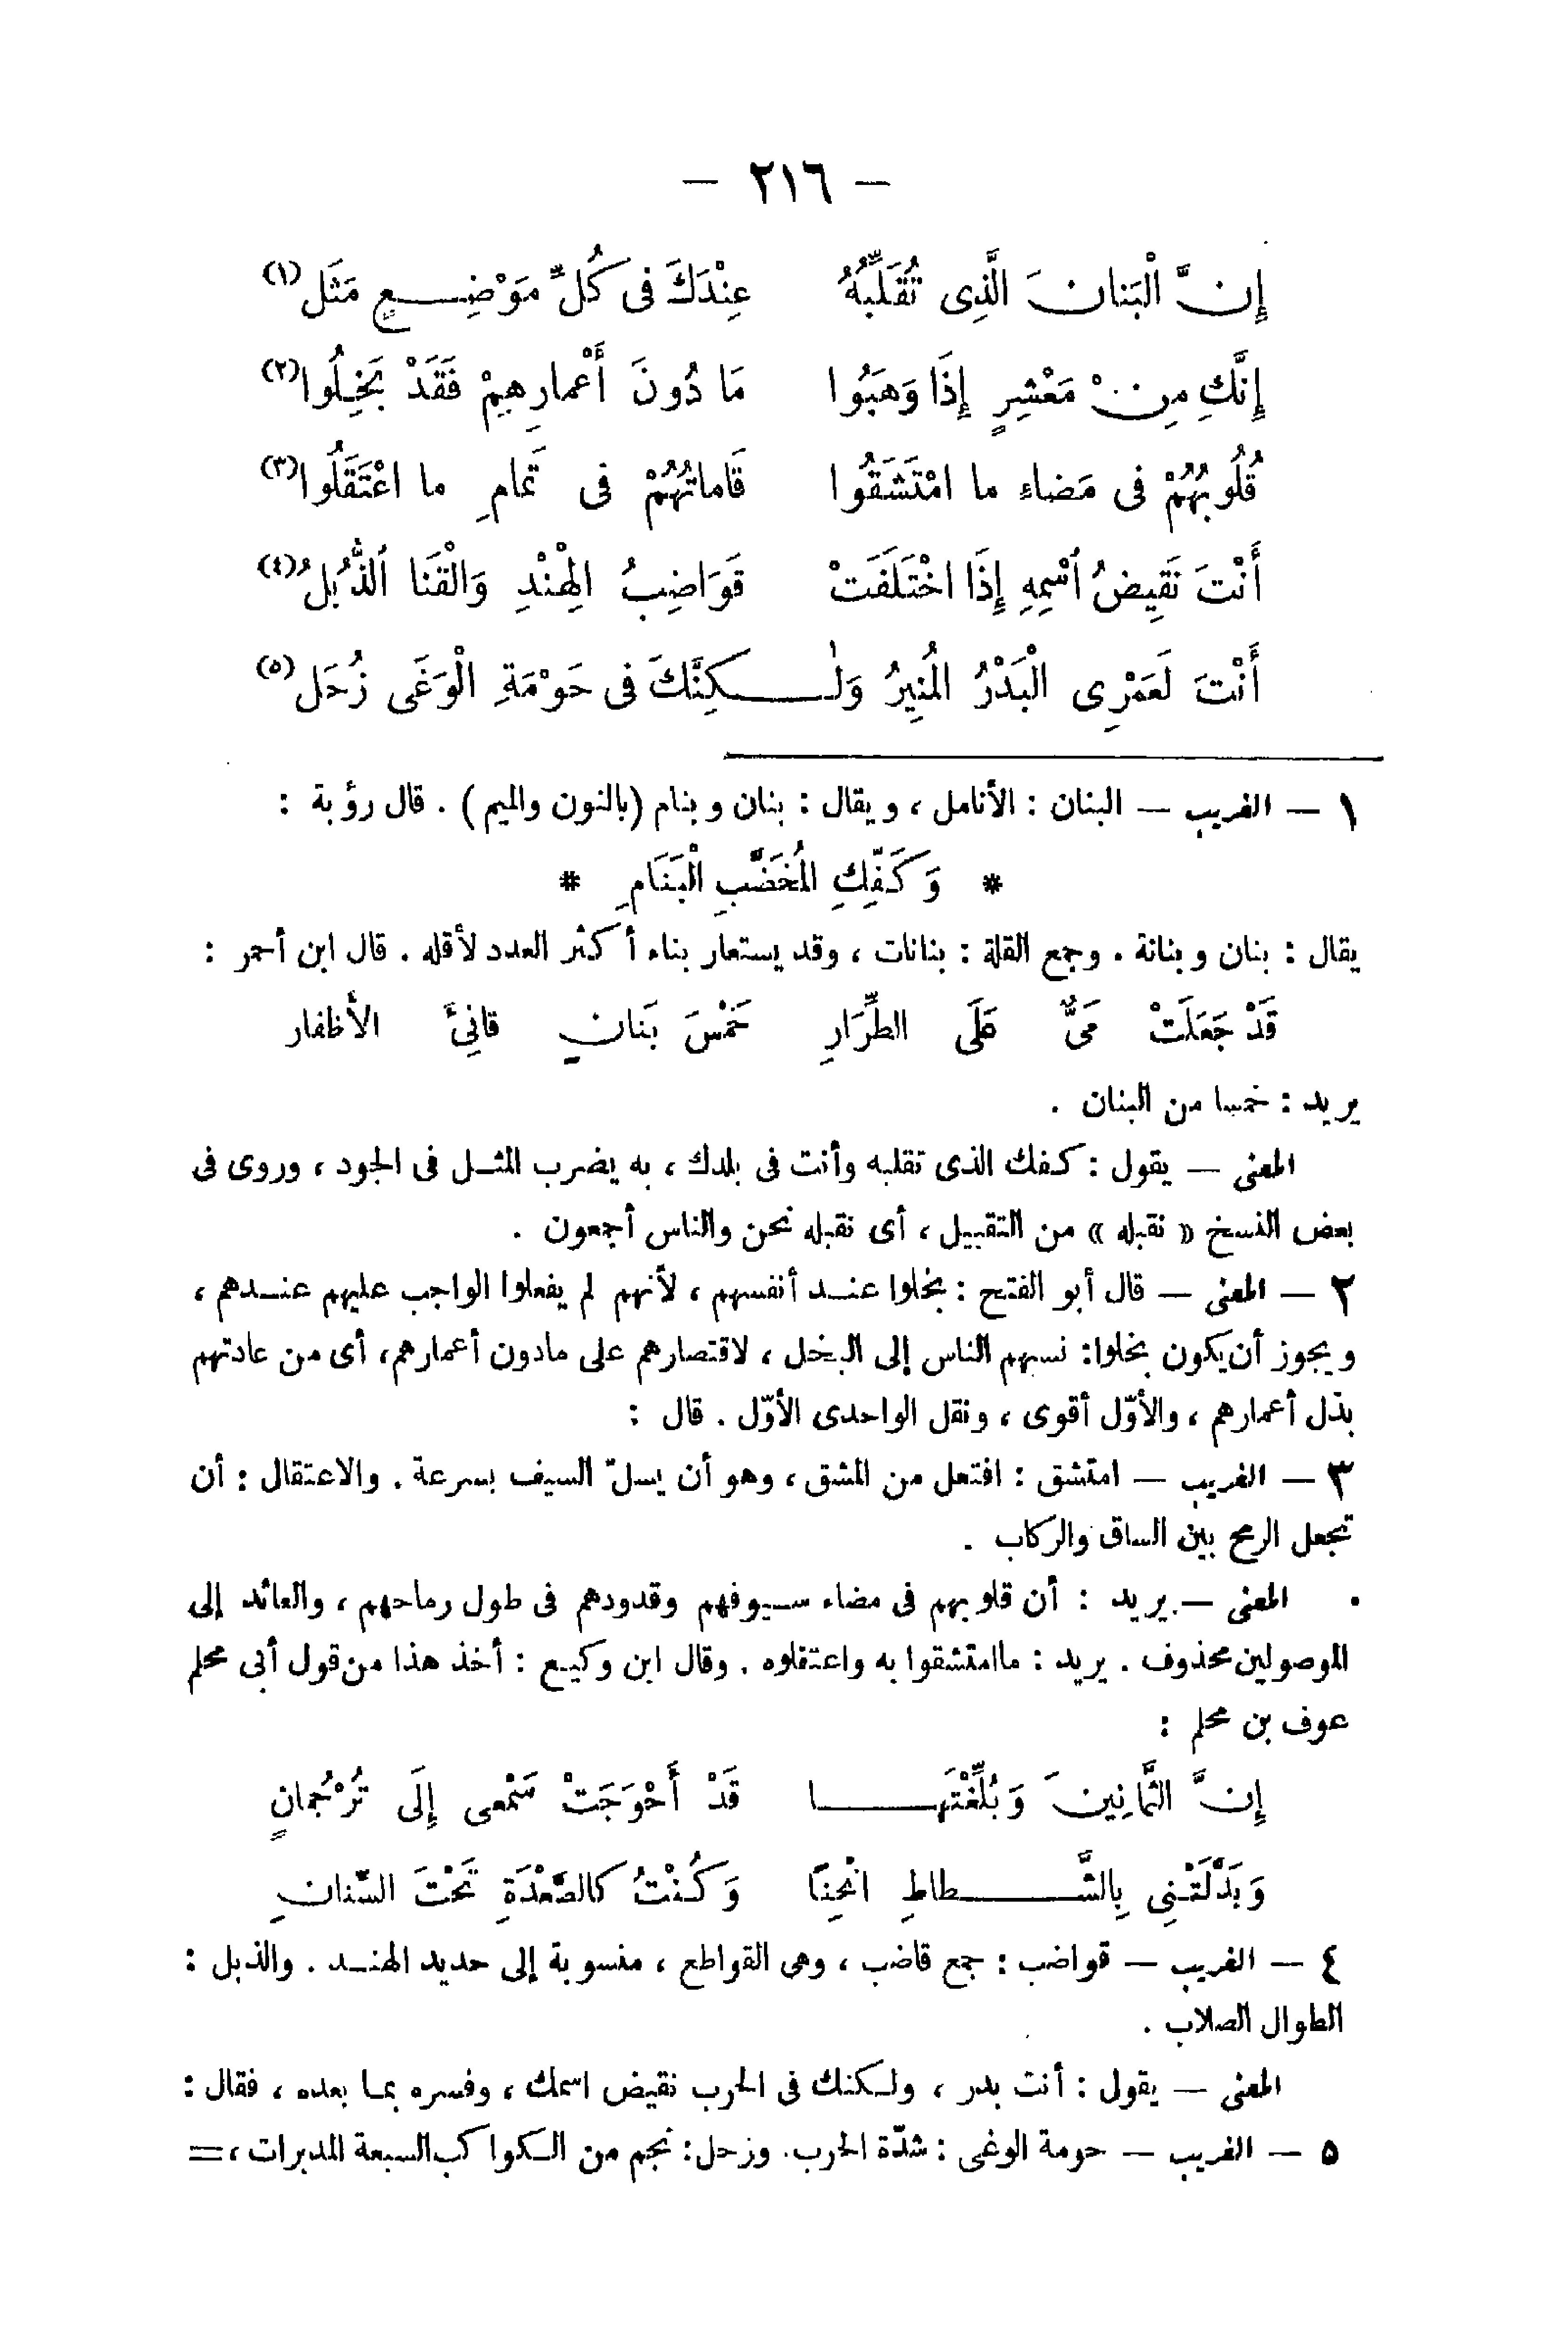 — ٢١٦ —
إِنَّ الْبَنانَ الَّذِى تُقَلِّبُهُ عِنْدَكَ فى كُلِّ مَوْضِعٍ مَثَل (١)
إِنَّكِ مِنْ مَعْشرٍ إِذَا وَهَبُوا مَا دُونَ أَعْمارِهِمْ فَقَدْ بَخِلُوا (٢)
قُلُوبُهُمْ فى مَضاءِ ما امْتَشَقُوا قَاماتُهُمْ فى تَمامِ ما اعْتَقَلُوا (٣)
أَنْتَ نَقِيضُ ٱسْمِهِ إِذَا اخْتَلَفَتْ قَوَاضِبُ الْهِنْدِ وَالْقَنَا ٱلذُّبُلُ (٤)
أَنْتَ لَعَمْرِى الْبَدْرُ المُنِيرُ وَلٰكِنَّكَ فى حَوْمَةِ الْوَغَى زُحَل (٥)
١ — الغريب — البنان : الأنامل ، ويقال : بنان وبنام (بالنون والميم) . قال رؤبة :
* وَكَفِّكِ المُخَضَّبِ الْبَنَامِ *
يقال : بنان وبنانة . وجمع القلة : بنانات ، وقد يستعار بناء أكثر العدد لأقله . قال ابن أحمر :
قَدْ جَعَلَتْ مَىٌّ عَلَى الطِّرَارِ خَمْسَ بَنانٍ قانِئَ الأظفار
يريد : خمسا من البنان .
المعنى — يقول : كفك الذى تقلبه وأنت فى بلدك ، به يضرب المثل فى الجود ، وروى فى
بعض النسخ « نقبله » من التقبيل ، أى نقبله نحن والناس أجمعون .
٢ — المعنى — قال أبو الفتح : بخلوا عند أنفسهم ، لأنهم لم يفعلوا الواجب عليهم عندهم ،
ويجوز أن يكون بخلوا : نسبهم الناس إلى البخل ، لاقتصارهم على مادون أعمارهم، أى من عادتهم
بذل أعمارهم ، والأوّل أقوى ، ونقل الواحدى الأوّل . قال :
٣ — الغريب — امتشق : افتعل من المشق ، وهو أن يسلّ السيف بسرعة . والاعتقال : أن
تجعل الرمح بين الساق والركاب .
المعنى — يريد : أن قلوبهم فى مضاء سيوفهم وقدودهم فى طول رماحهم ، والعائد إلى
الموصولين محذوف . يريد : ماامتشقوا به واعتقلوه . وقال ابن وكيع : أخذ هذا من قول أبى محلم
عوف بن محلم :
إِنَّ الثَّمانِينَ وَبُلِّغْتَها قَدْ أَحْوَجَتْ سَمْعى إِلَى تُرْجُمانٍ
وَبَدَّلَتْنِى بِالشَّطاطِ انْحِنًا وَكُنْتُ كالصَّعْدَةِ تَحْتَ السِّنانِ
٤ — الغريب — قواضب : جمع قاضب ، وهى القواطع ، منسوبة إلى حديد الهند . والذبل :
الطوال الصلاب .
المعنى — يقول : أنت بدر ، ولكنك فى الحرب نقيض اسمك ، وفسره بما بعده ، فقال :
٥ — الغريب — حومة الوغى : شدّة الحرب . وزحل : نجم من الكواكب السبعة المدبرات ، =